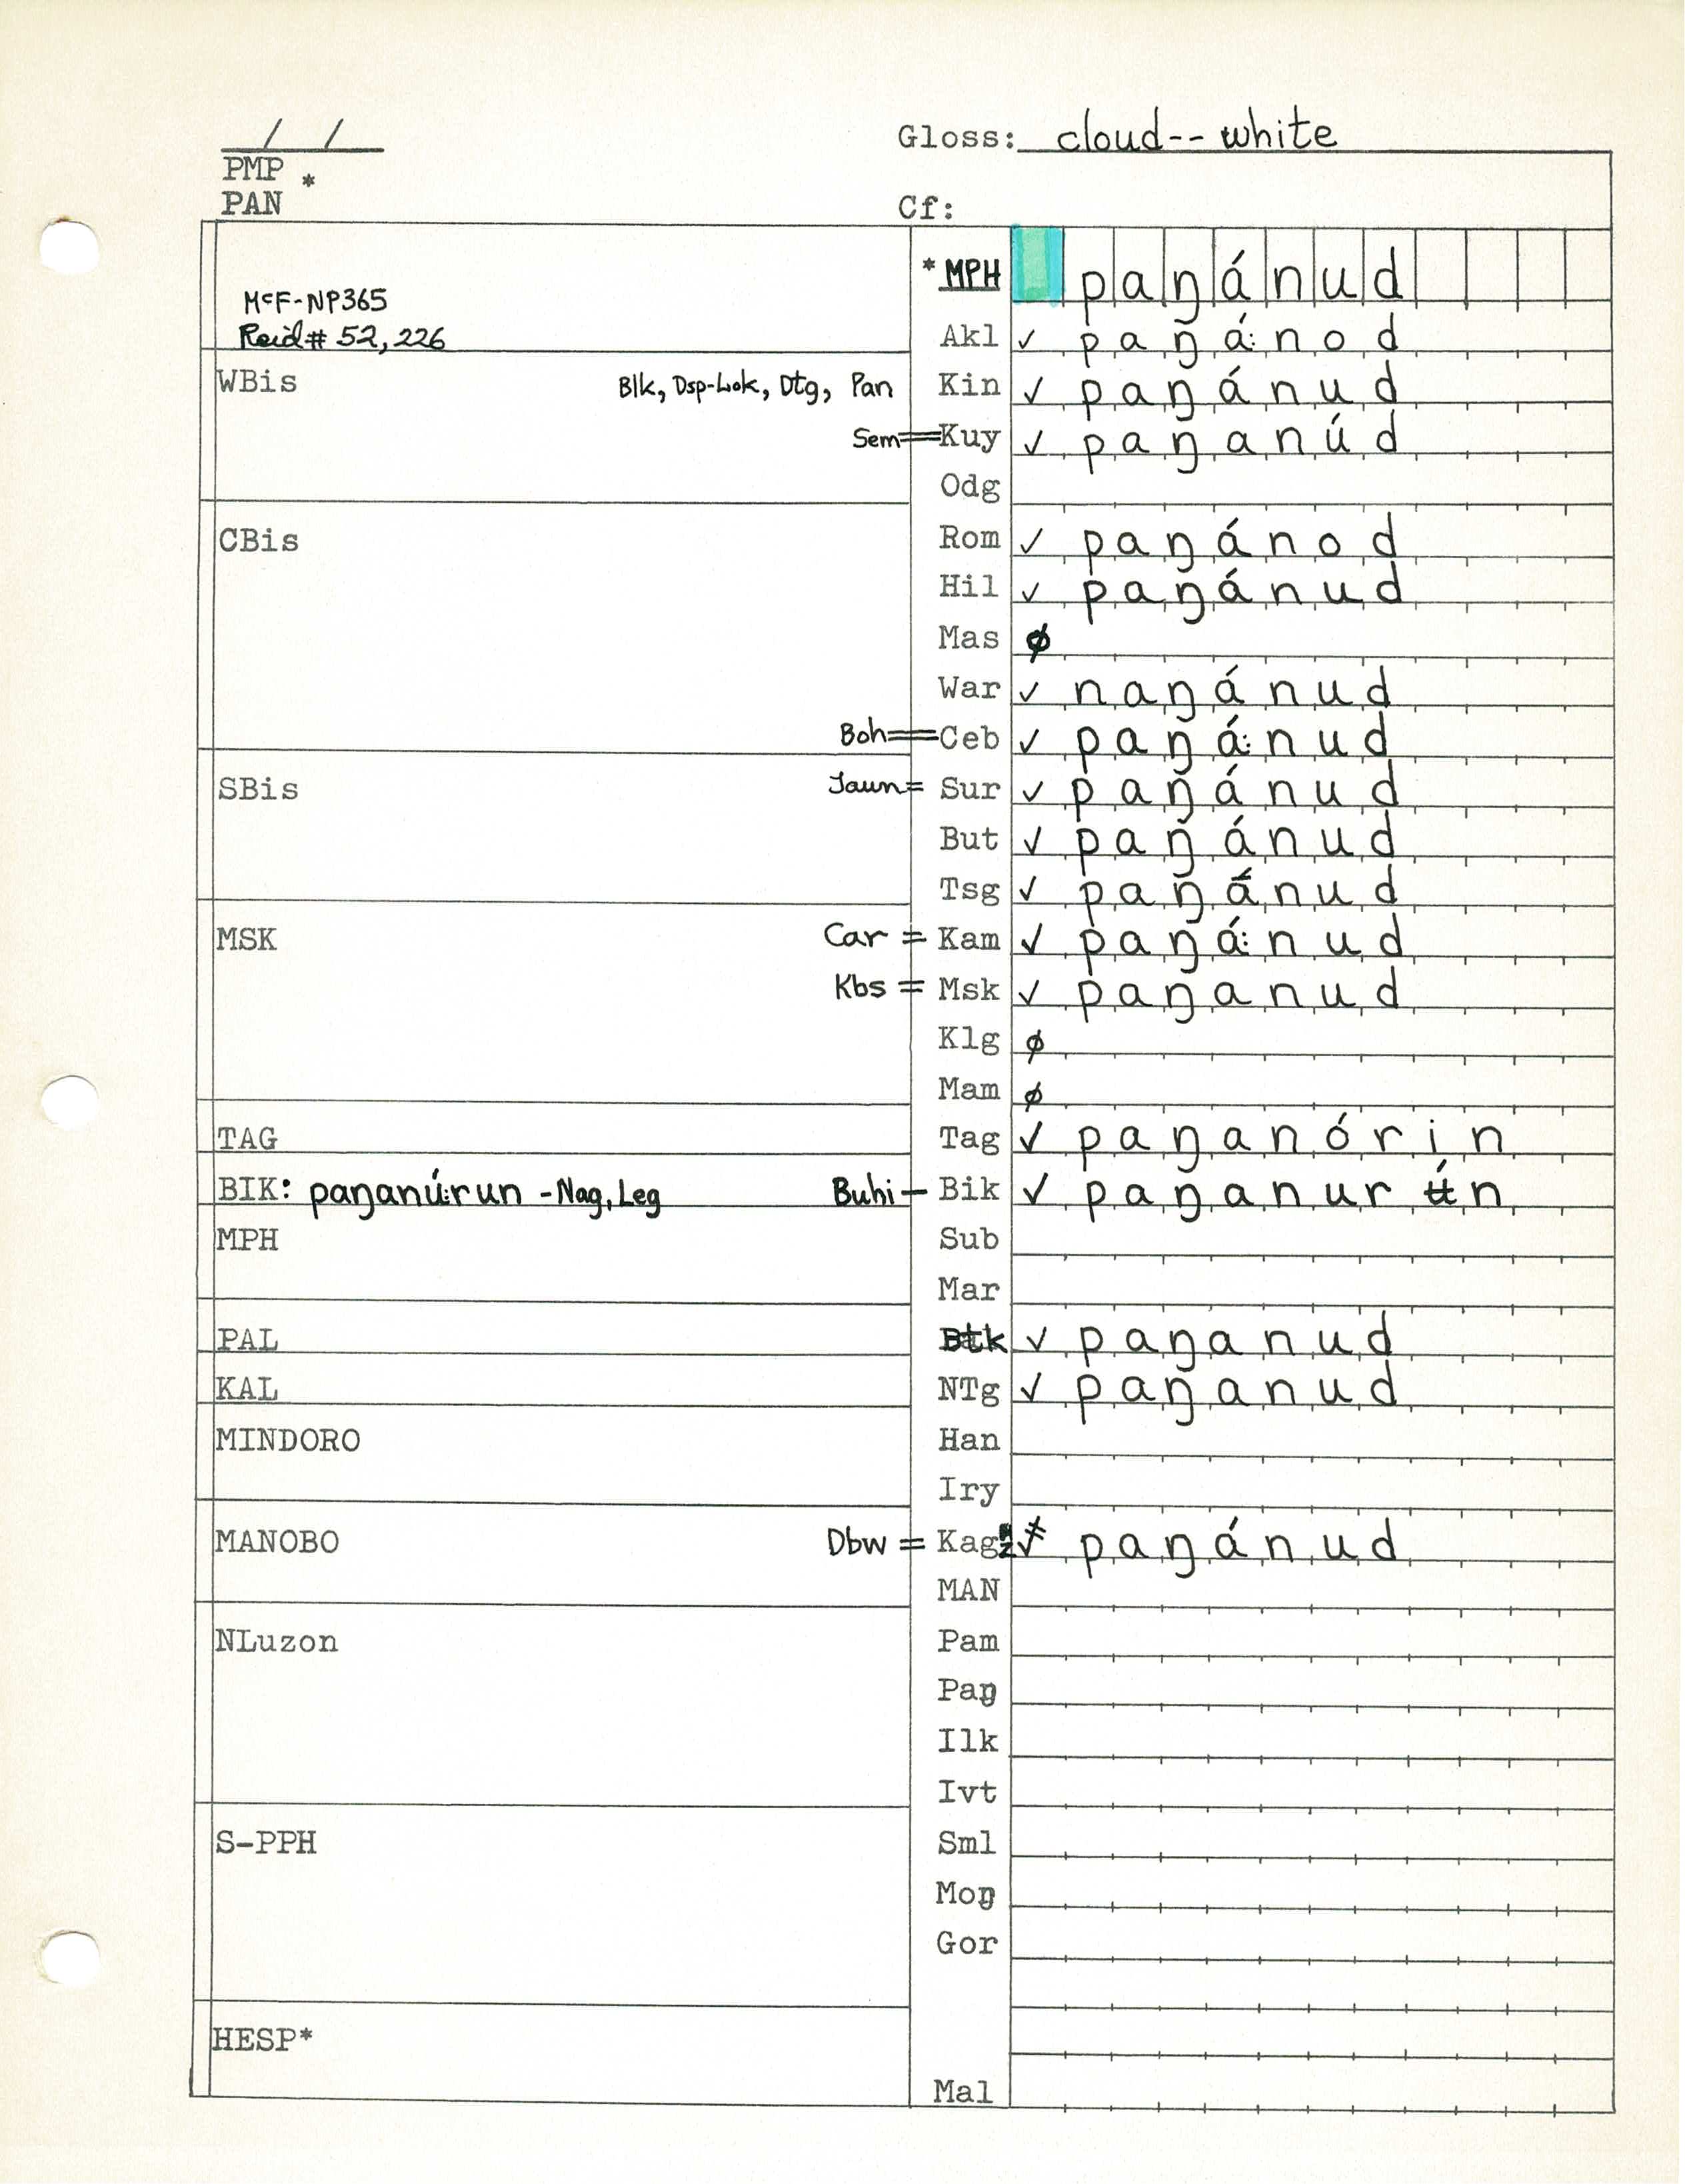 / /
Gloss: cloud--white
PMP *
PAN
Cf:
McF-NP365
Reid# 52,226
*MPH paŋánud
Akl ✓ paŋá:nod
WBis Blk, Dsp-Lok, Dtg, Pan Kin ✓ paŋánud
Sem=Kuy ✓ paŋanúd
Odg
CBis Rom ✓ paŋánod
Hil ✓ paŋánud
Mas ø
War ✓ naŋánud
Boh=Ceb ✓ paŋá:nud
SBis Jaun= Sur ✓ paŋánud
But ✓ paŋánud
Tsg ✓ paŋánud
MSK Car = Kam ✓ paŋá:nud
Kbs = Msk ✓ paŋanud
Klg ø
Mam ø
TAG Tag ✓ paŋanórin
BIK: paŋanú:run -Nag, Leg Buhi- Bik ✓ paŋanurʉ́n
MPH Sub
Mar
PAL Btk ✓ paŋanud
KAL NTg ✓ paŋanud
MINDORO Han
Iry
MANOBO Dbw = Kag ✓ paŋánud
MAN
NLuzon Pam
Paŋ
Ilk
Ivt
S-PPH Sml
Moŋ
Gor
HESP*
Mal